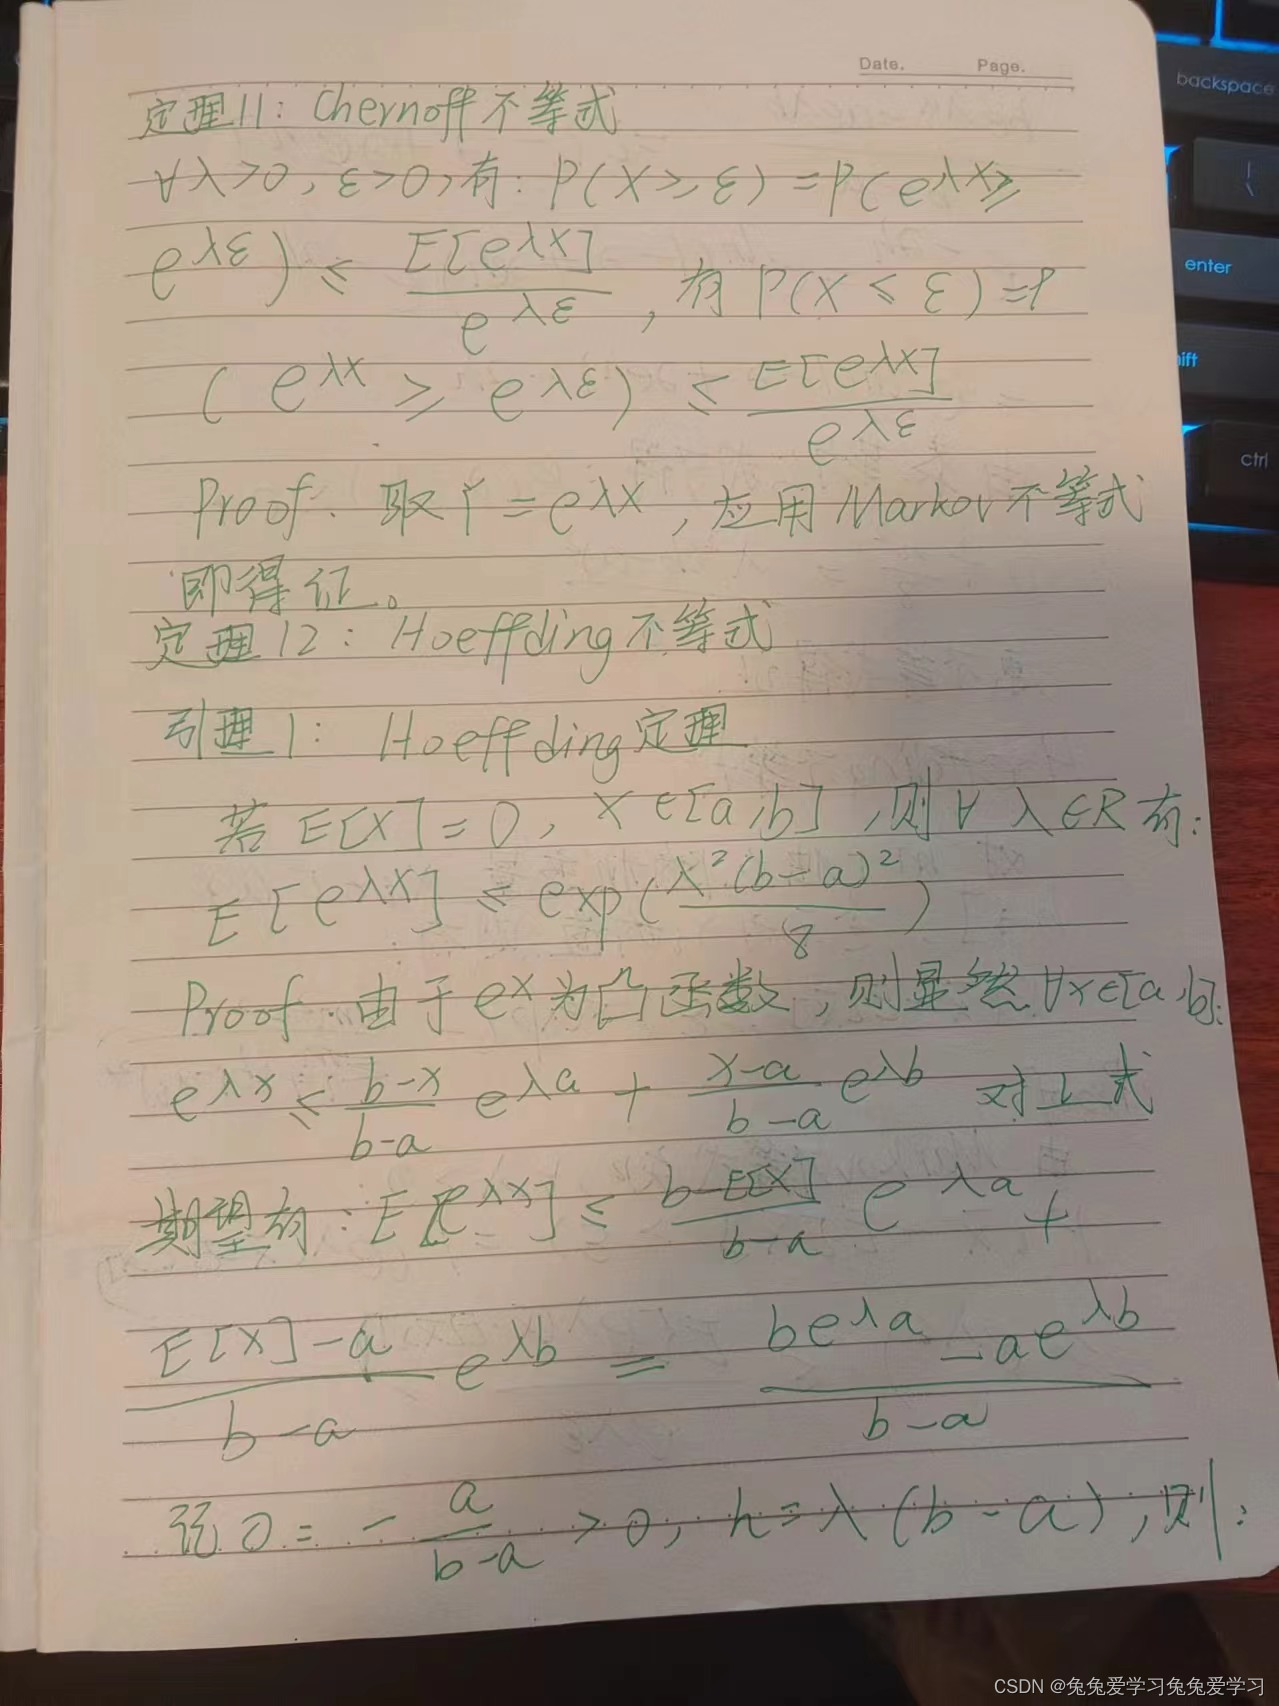 Date. Page.
定理11: Chernoff 不等式
∀λ>0, ε>0, 有: P(X≥ε)=P(e^{λX}≥
e^{λε}) ≤ \frac{E[e^{λX}]}{e^{λε}}, 有 P(X≤ε)=P
(e^{λX} ≥ e^{λε}) ≤ \frac{E[e^{λX}]}{e^{λε}}
Proof. 取Y=e^{λX}, 应用Markov不等式
即得证。
定理12: Hoeffding不等式
引理1: Hoeffding定理
若 E[X]=0, X∈[a,b], 则∀ λ∈R有:
E[e^{λX}] ≤ exp(\frac{λ^2(b-a)^2}{8})
Proof. 由于e^x为凸函数, 则显然∀x∈[a,b]:
e^{λx} ≤ \frac{b-x}{b-a} e^{λa} + \frac{x-a}{b-a} e^{λb} 对上式
期望有: E[e^{λX}] ≤ \frac{b-E[X]}{b-a} e^{λa} +
\frac{E[X]-a}{b-a} e^{λb} = \frac{be^{λa}-ae^{λb}}{b-a}
= -\frac{a}{b-a} > 0, h=λ(b-a), 则:
backspace
enter
ctrl
CSDN @兔兔爱学习兔兔爱学习